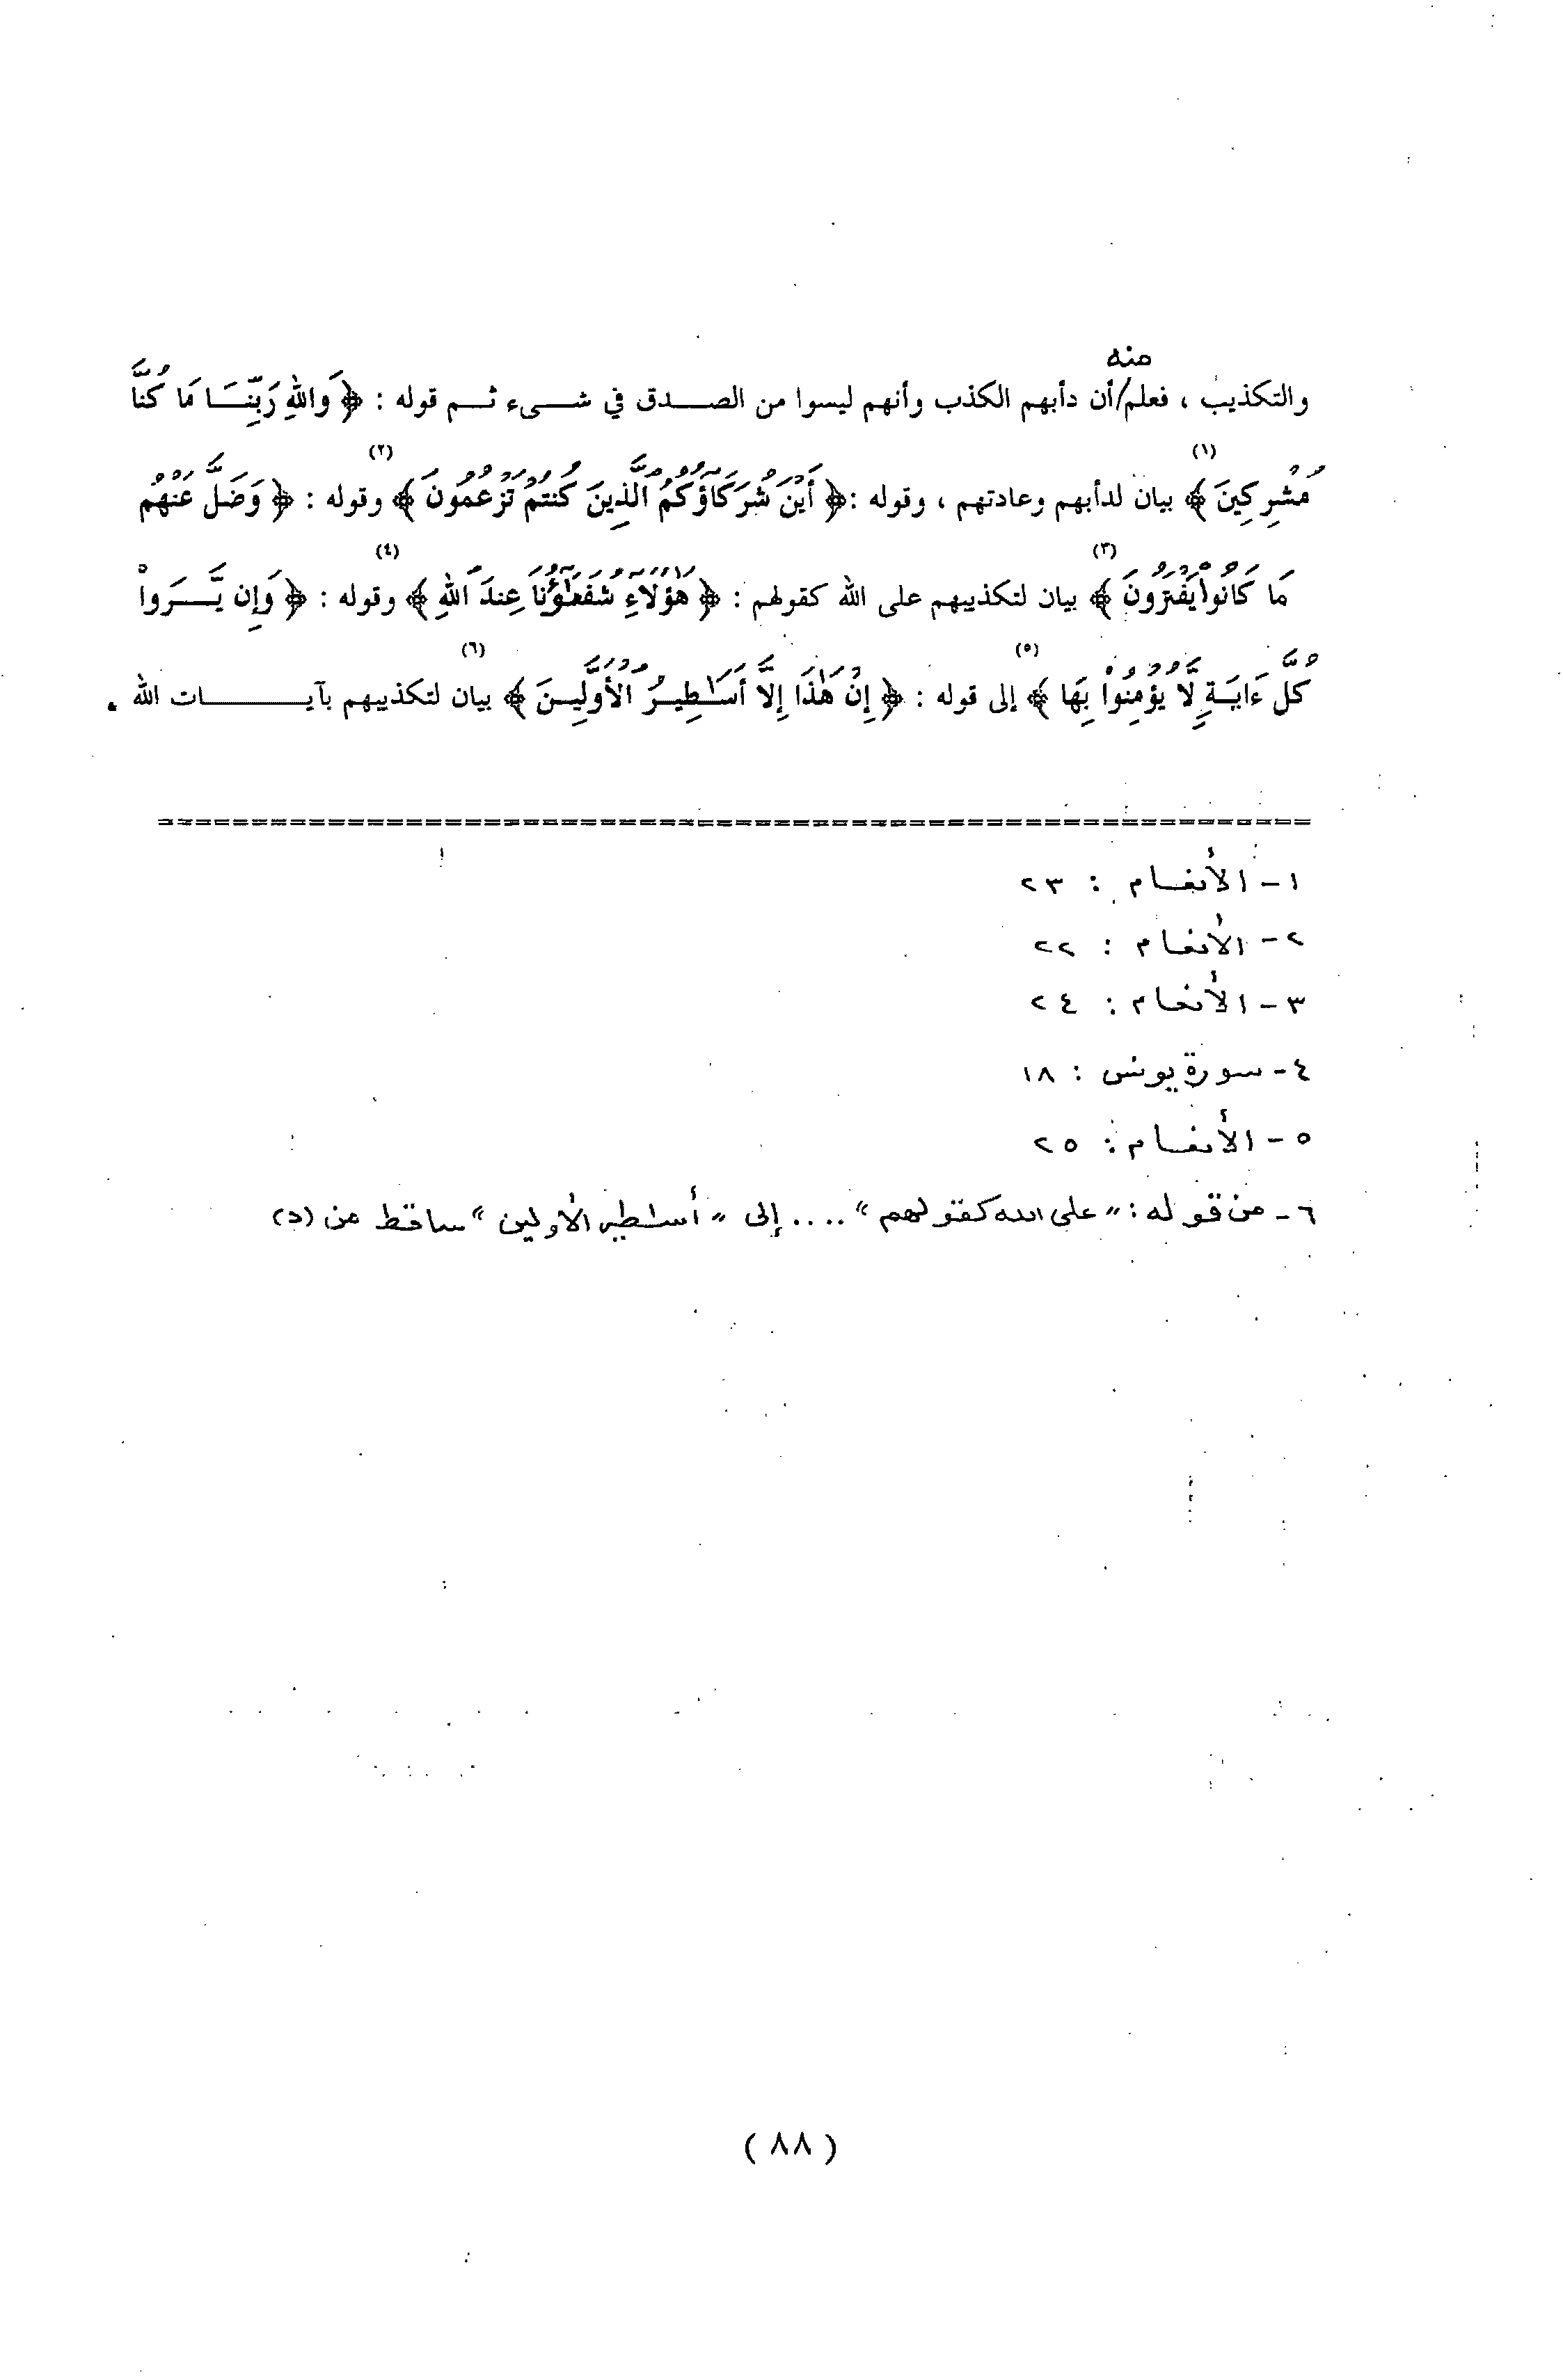 منه
والتكذيب ، فعلم/أن دأبهم الكذب وأنهم ليسوا من الصـــدق في شـــىء ثـــم قوله : ﴿ وَاللَّهِ رَبِّنَـــا مَا كُنَّا
مُشْرِكِينَ ﴾(١) بيان لدأبهم وعادتهم ، وقوله :﴿ أَيْنَ شُرَكَآؤُكُمُ الَّذِينَ كُنتُمْ تَزْعُمُونَ ﴾(٢) وقوله : ﴿ وَضَلَّ عَنْهُم
مَا كَانُواْ يَفْتَرُونَ ﴾(٣) بيان لتكذيبهم على الله كقولهم : ﴿ هَٰؤُلَآءِ شُفَعَٰٓؤُنَا عِندَ اللَّهِ ﴾(٤) وقوله : ﴿ وَإِن يَـــرَواْ
كُلَّ ءَايَـةٍ لَّا يُؤْمِنُواْ بِهَا ﴾(٥) إلى قوله : ﴿ إِنْ هَٰذَا إِلَّا أَسَـٰطِيـرُ الْأَوَّلِيـنَ ﴾(٦) بيان لتكذيبهم بآيـــــــات الله .
١ - الأنعام : ٢٣
٢ - الأنعام : ٢٢
٣ - الأنعام : ٢٤
٤ - سورة يونس : ١٨
٥ - الأنعام : ٢٥
٦ - من قوله : " على الله كقولهم " .... إلى " أساطير الأولين " ساقط من (د)
( ٨٨ )